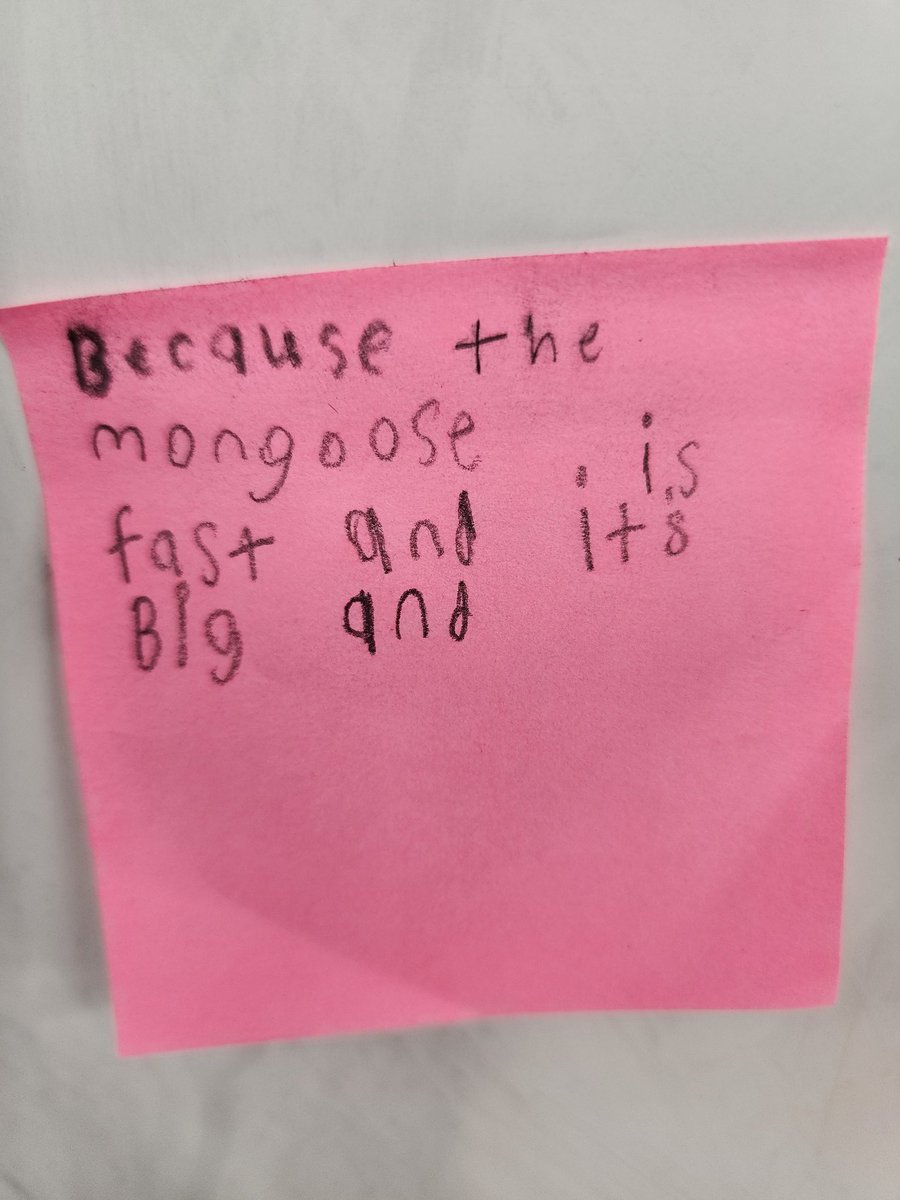 Because the
mongoose is
fast and it's
Big and